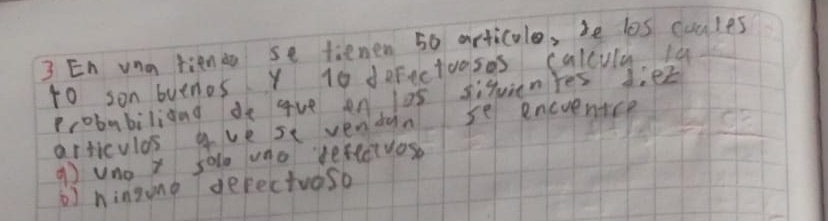 3 En una tienda se tienen 50 articulos, de los cuales
40 son buenos y 10 defectuosos calcula la
probabilidad de que en los siguientes diez
articulos que se vendan se encuentre
a) uno y solo uno defectuoso
b) ninguno defectuoso